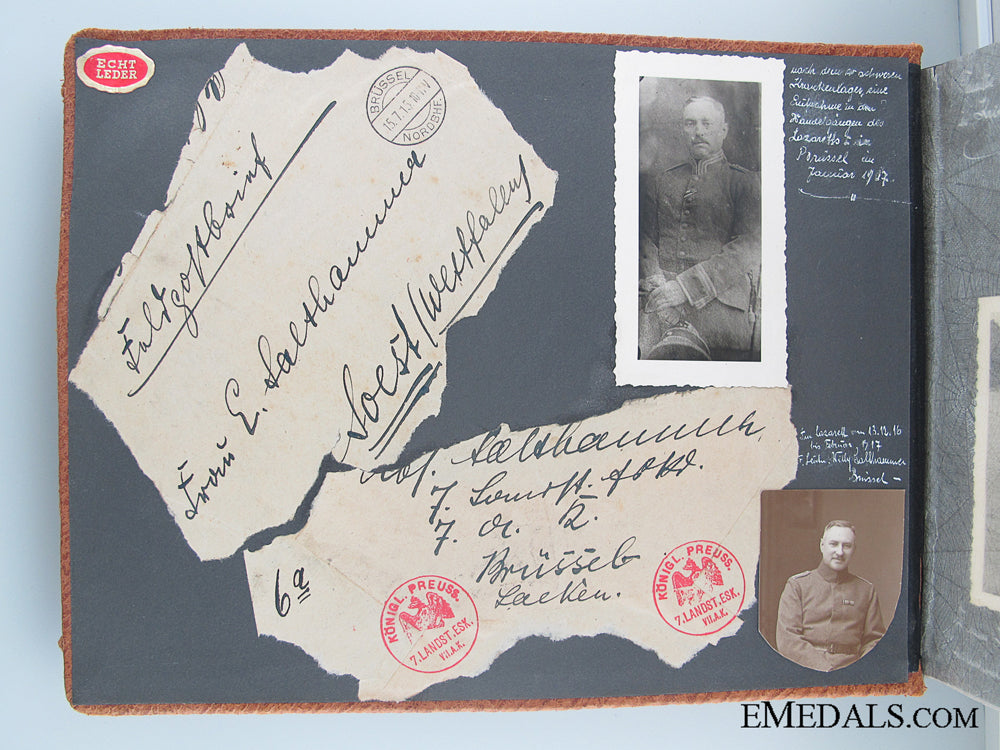 ECHT
LEDER
Feldpostbrief
BRÜSSEL
15.7.15.
NORDBHF.
Frau E. Salthammer
Soest/Westfalen
nach dem so schweren
Krankenlager, eine
Aufnahme in den
Wandelgängen des
Lazaretts in
Brüssel im
Januar 1917.
Salthammer,
7.
7. A. K.
Brüssel
Laeken.
6a
KÖNIGL. PREUSS.
7. LANDST. ESK.
VII. A.K.
KÖNIGL. PREUSS.
7. LANDST. ESK.
VII. A.K.
Im Lazarett vom 13.12.16
bis Februar 1917
Willy Salthammer
Brüssel —
EMEDALS.COM